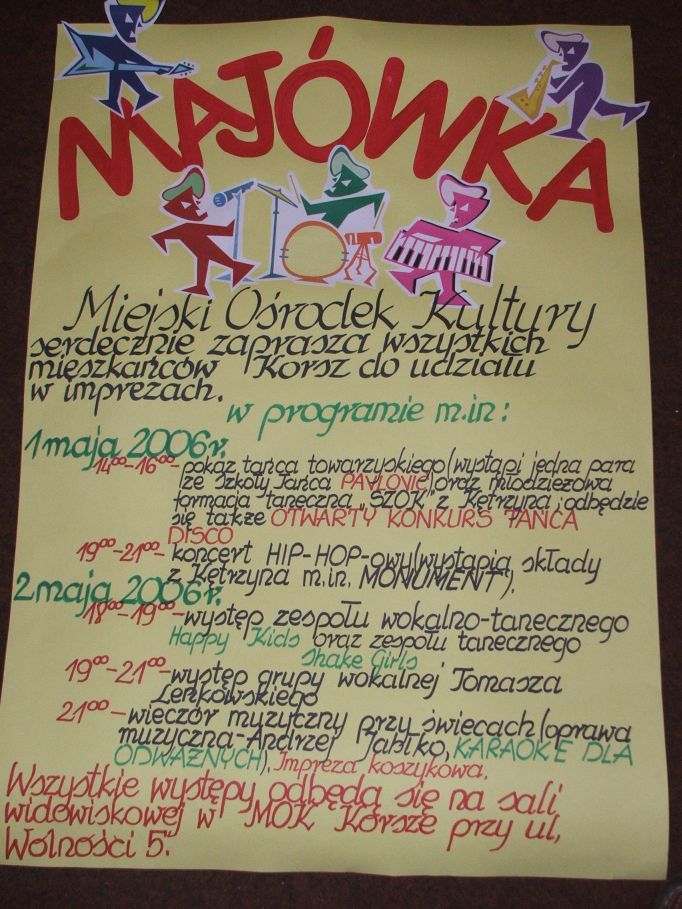 MAJÓWKA
Miejski Ośrodek Kultury
serdecznie zaprasza wszystkich
mieszkańców Korsz do udziału
w imprezach.
w programie m.in:
1 maja 2006r.
14⁰⁰-16⁰⁰- pokaz tańca towarzyskiego (wystąpi jedna para
ze Szkoły Tańca PAVLOVIC) oraz młodzieżowa
formacja taneczna „SZOK" z Kętrzyna; odbędzie
się także OTWARTY KONKURS TAŃCA
DISCO
19⁰⁰-21⁰⁰- koncert HIP-HOP-owy (wystąpią składy
z Kętrzyna m.in. MONUMENT").
2 maja 2006r.
18⁰⁰-19⁰⁰-występ zespołu wokalno-tanecznego
Happy Kids oraz zespołu tanecznego
Shake Girls
19⁰⁰-21⁰⁰-występ grupy wokalnej Tomasza
Leńkowskiego
21⁰⁰-wieczór muzyczny przy świecach (oprawa
muzyczna-Andrzej Jabłko, KARAOKE DLA
ODWAŻNYCH), Impreza koszykowa.
Wszystkie występy odbędą się na sali
widowiskowej w MOK Korsze przy ul.
Wolności 5.